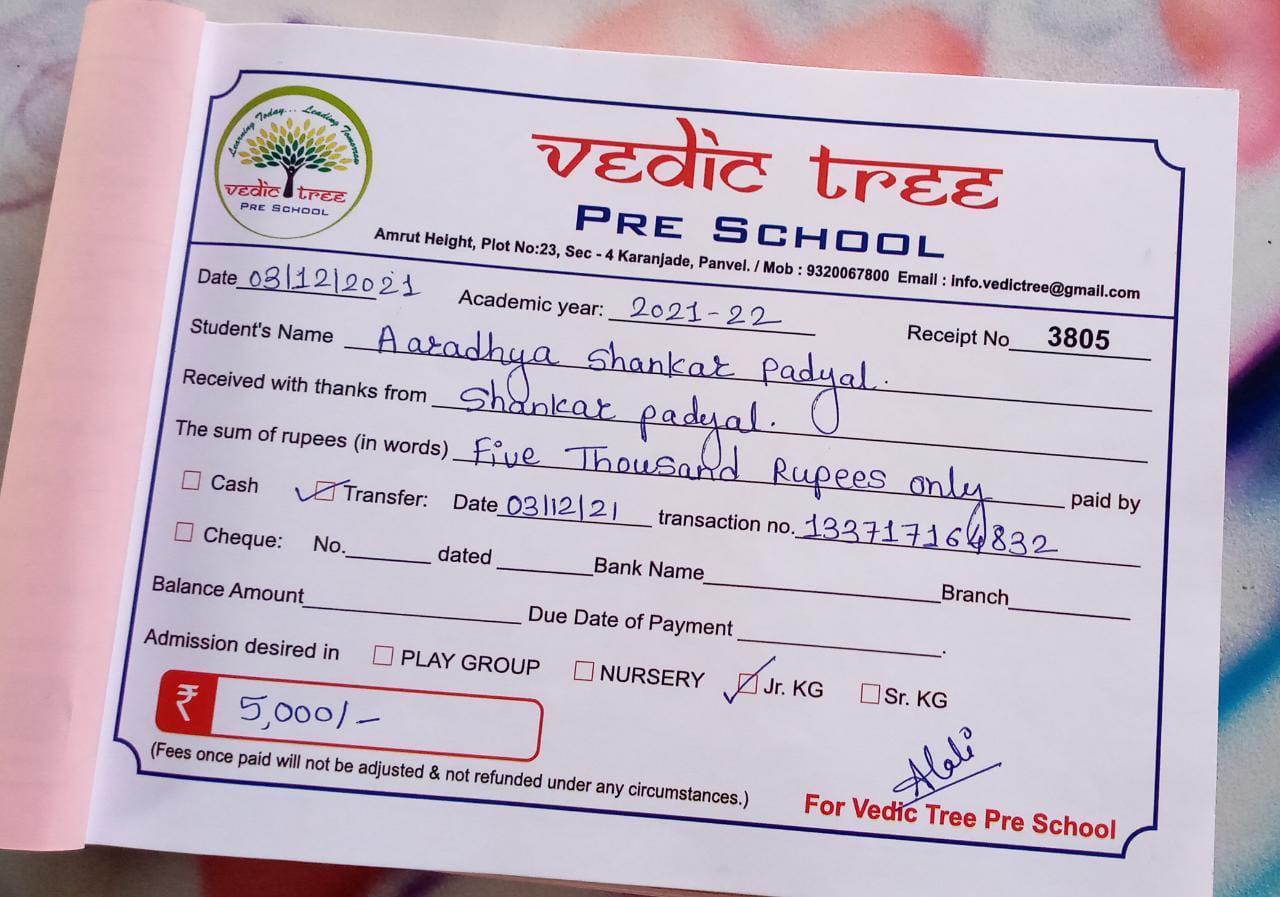 Learning Today... Leading Tomorrow
vedic tree
PRE SCHOOL
vedic tree
PRE SCHOOL
Amrut Height, Plot No:23, Sec - 4 Karanjade, Panvel. / Mob : 9320067800 Email : info.vedictree@gmail.com
Date 03/12/2021 Academic year: 2021-22 Receipt No 3805
Student's Name Aaradhya Shankar Padyal.
Received with thanks from Shankar padyal.
The sum of rupees (in words) Five Thousand Rupees only paid by
Cash Transfer: Date 03/12/21 transaction no. 133717164832
Cheque: No. dated Bank Name Branch
Balance Amount Due Date of Payment .
Admission desired in PLAY GROUP NURSERY Jr. KG Sr. KG
₹ 5,000/-
(Fees once paid will not be adjusted & not refunded under any circumstances.)
For Vedic Tree Pre School